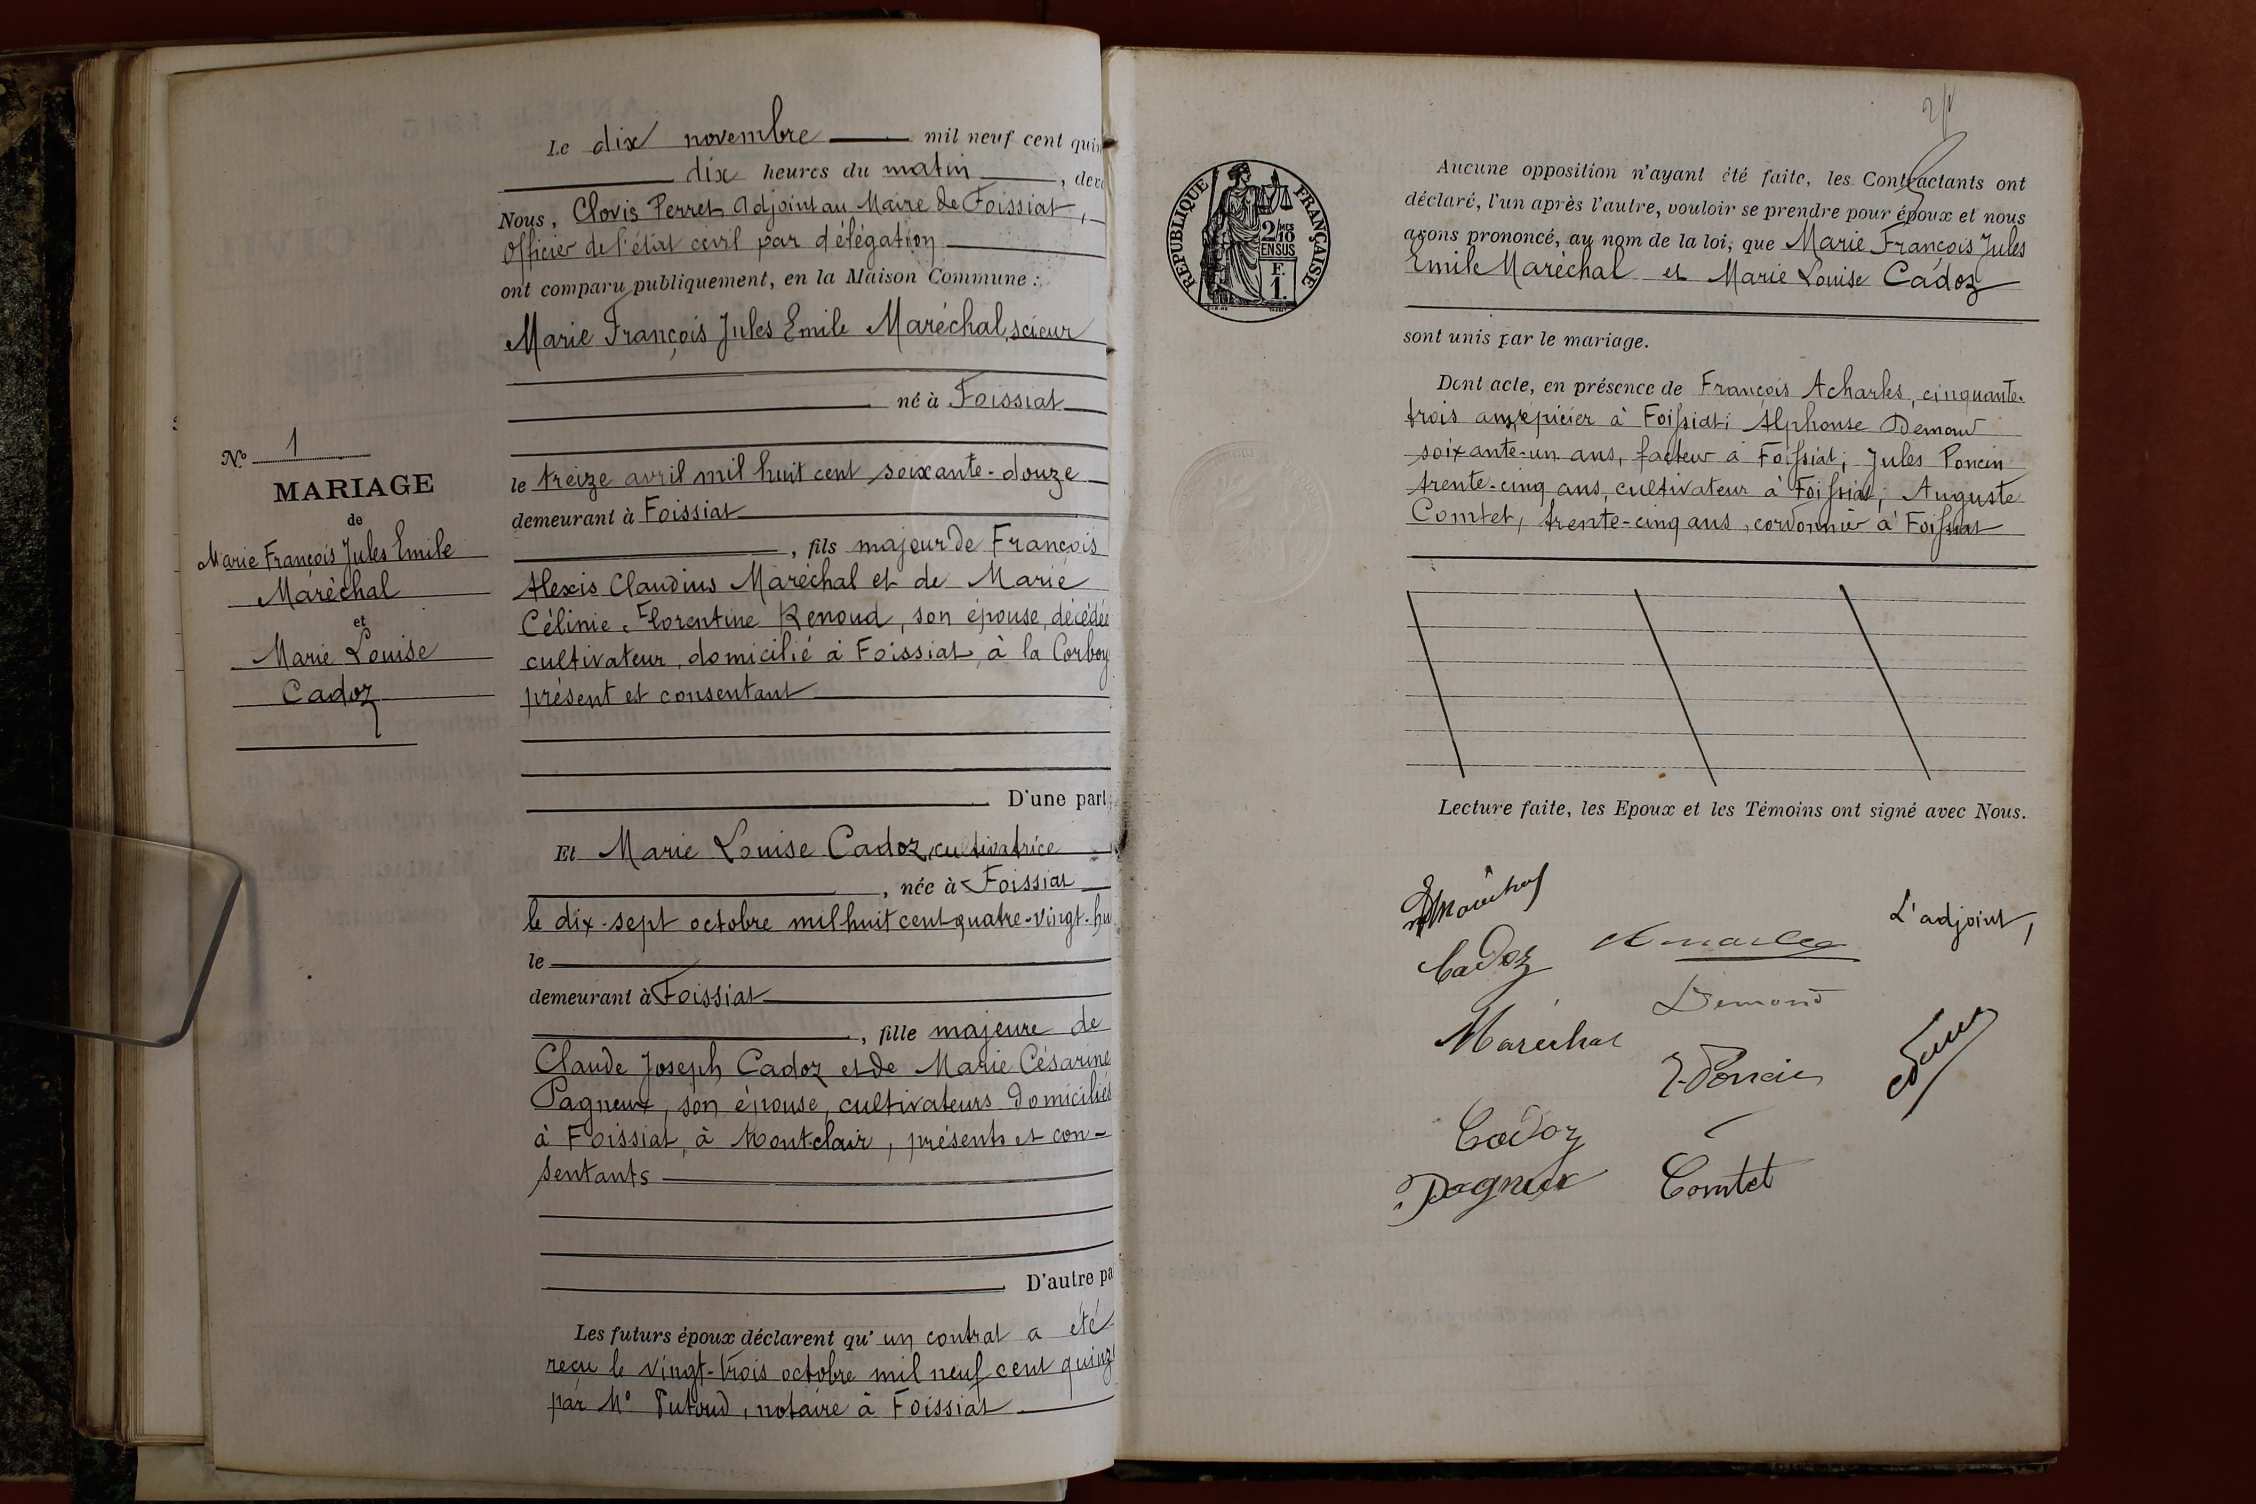 Le dix novembre mil neuf cent quin
dix heures du matin, deva
Nous, Clovis Perret adjoint au Maire de Foissiat,
Officier de l'état civil par délégation
ont comparu publiquement, en la Maison Commune :
Marie François Jules Emile Maréchal, scieur
né à Foissiat
le treize avril mil huit cent soixante-douze
demeurant à Foissiat
, fils majeur de François
Alexis Claudius Maréchal et de Marie
Célinie Florentine Renoud, son épouse, décédée
cultivateur, domicilié à Foissiat, à la Corboy
présent et consentant
D'une part,
Et Marie Louise Cadoz, cultivatrice
, née à Foissiat
le dix-sept octobre mil huit cent quatre-vingt-hu
le
demeurant à Foissiat
, fille majeure de
Claude Joseph Cadoz et de Marie Césarine
Pagneux, son épouse, cultivateurs domiciliés
à Foissiat, à Montclair, présents et con-
sentants
D'autre pa
Les futurs époux déclarent qu'un contrat a été
reçu le vingt-trois octobre mil neuf cent quinz
par Me Putoud, notaire à Foissiat
N° 1
MARIAGE
de
Marie François Jules Emile
Maréchal
et
Marie Louise
Cadoz
RÉPUBLIQUE FRANÇAISE
2/10MES
EN SUS
F.
1.
Aucune opposition n'ayant été faite, les Contractants ont
déclaré, l'un après l'autre, vouloir se prendre pour époux et nous
avons prononcé, au nom de la loi, que Marie François Jules
Emile Maréchal et Marie Louise Cadoz
sont unis par le mariage.
Dont acte, en présence de François Acharles, cinquante-
trois ans, épicier à Foissiat; Alphonse Demond
soixante-un ans, facteur à Foissiat; Jules Poncin
trente-cinq ans, cultivateur à Foissiat; Auguste
Comtet, trente-cinq ans, cordonnier à Foissiat
Lecture faite, les Epoux et les Témoins ont signé avec Nous.
Maréchal
L'adjoint,
Cadoz
Demond
Maréchal
J. Poncin
Cadoz
Pagneux
Comtet